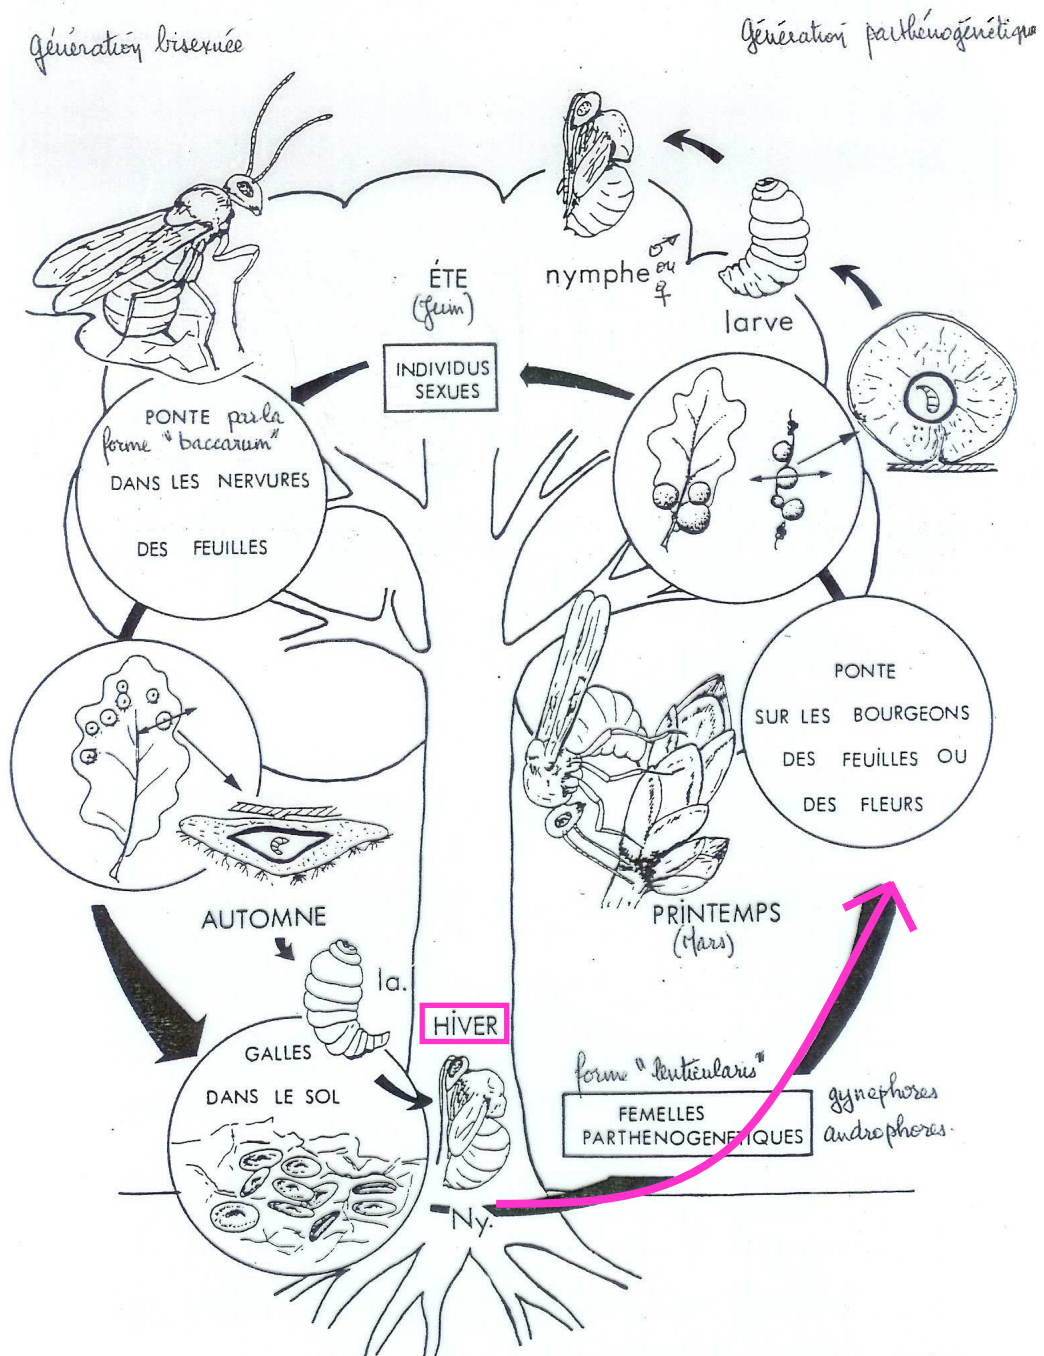 Génération bisexuée
Génération parthénogénétique
nymphe ♂
ou
♀
larve
ÉTE
(Juin)
INDIVIDUS
SEXUES
PONTE par la
forme "baccarum"
DANS LES NERVURES
DES FEUILLES
PONTE
SUR LES BOURGEONS
DES FEUILLES OU
DES FLEURS
AUTOMNE
PRINTEMPS
(Mars)
la.
HIVER
GALLES
DANS LE SOL
forme "lenticularis"
FEMELLES
PARTHENOGENETIQUES
gynéphores
androphores.
Ny.